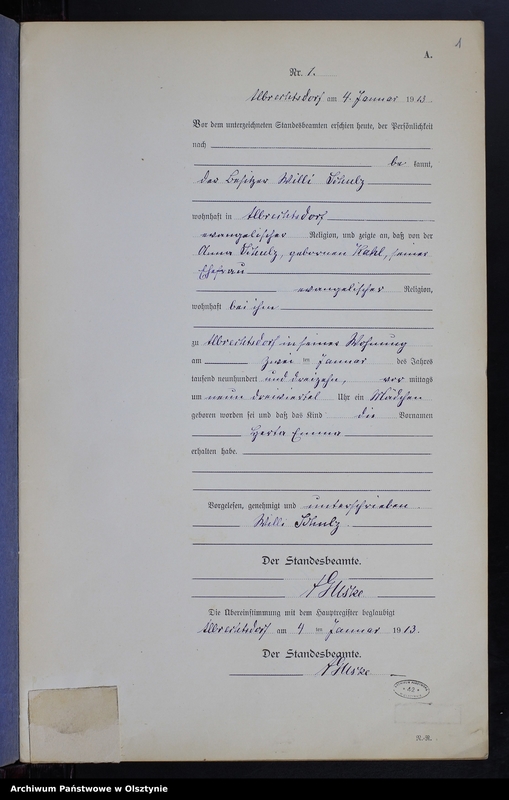 1
A.
Nr. 1.
Albrechtsdorf am 4. Januar 1913.
Vor dem unterzeichneten Standesbeamten erschien heute, der Persönlichkeit
nach
be kannt,
der Besitzer Willi Schulz
wohnhaft in Albrechtsdorf
evangelischer Religion, und zeigte an, daß von der
Anna Schulz, gebornen Kahl, seiner
Ehefrau
evangelischer Religion,
wohnhaft bei ihm
zu Albrechtsdorf in seiner Wohnung
am zwei ten Januar des Jahres
tausend neunhundert und dreizehn, vor mittags
um neun dreiviertel Uhr ein Mädchen
geboren worden sei und daß das Kind die Vornamen
Herta Emma
erhalten habe.
Vorgelesen, genehmigt und unterschrieben
Willi Schulz.
Der Standesbeamte.
Die Übereinstimmung mit dem Hauptregister beglaubigt
Albrechtsdorf am 4 ten Januar 1913.
Der Standesbeamte.
42
R.-R.
Archiwum Państwowe w Olsztynie